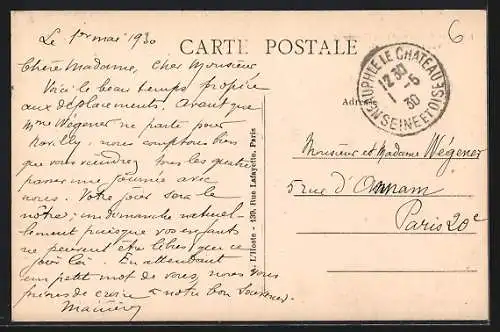 6
CARTE POSTALE
Le 1er mai 1930
Chère Madame, cher Monsieur
Voici le beau temps propice
aux déplacements. Avant que
Mme Wégener ne parte pour
nous comptons bien
que vous viendrez tous les quatre
passer une journée avec
nous. Votre jour sera le
nôtre ; un dimanche naturel-
lement puisque vos enfants
ne peuvent être libres que ce
jour là. En attendant
un petit mot de vous, nous vous
prions de croire à notre bon souvenir.
L'Hoste - 139, Rue Lafayette, Paris
NEAUPHLE LE CHATEAU
SEINE ET OISE
12 30
1-5
30
Adresse
Monsieur et Madame Wégener
5 rue d'Annam
Paris 20e